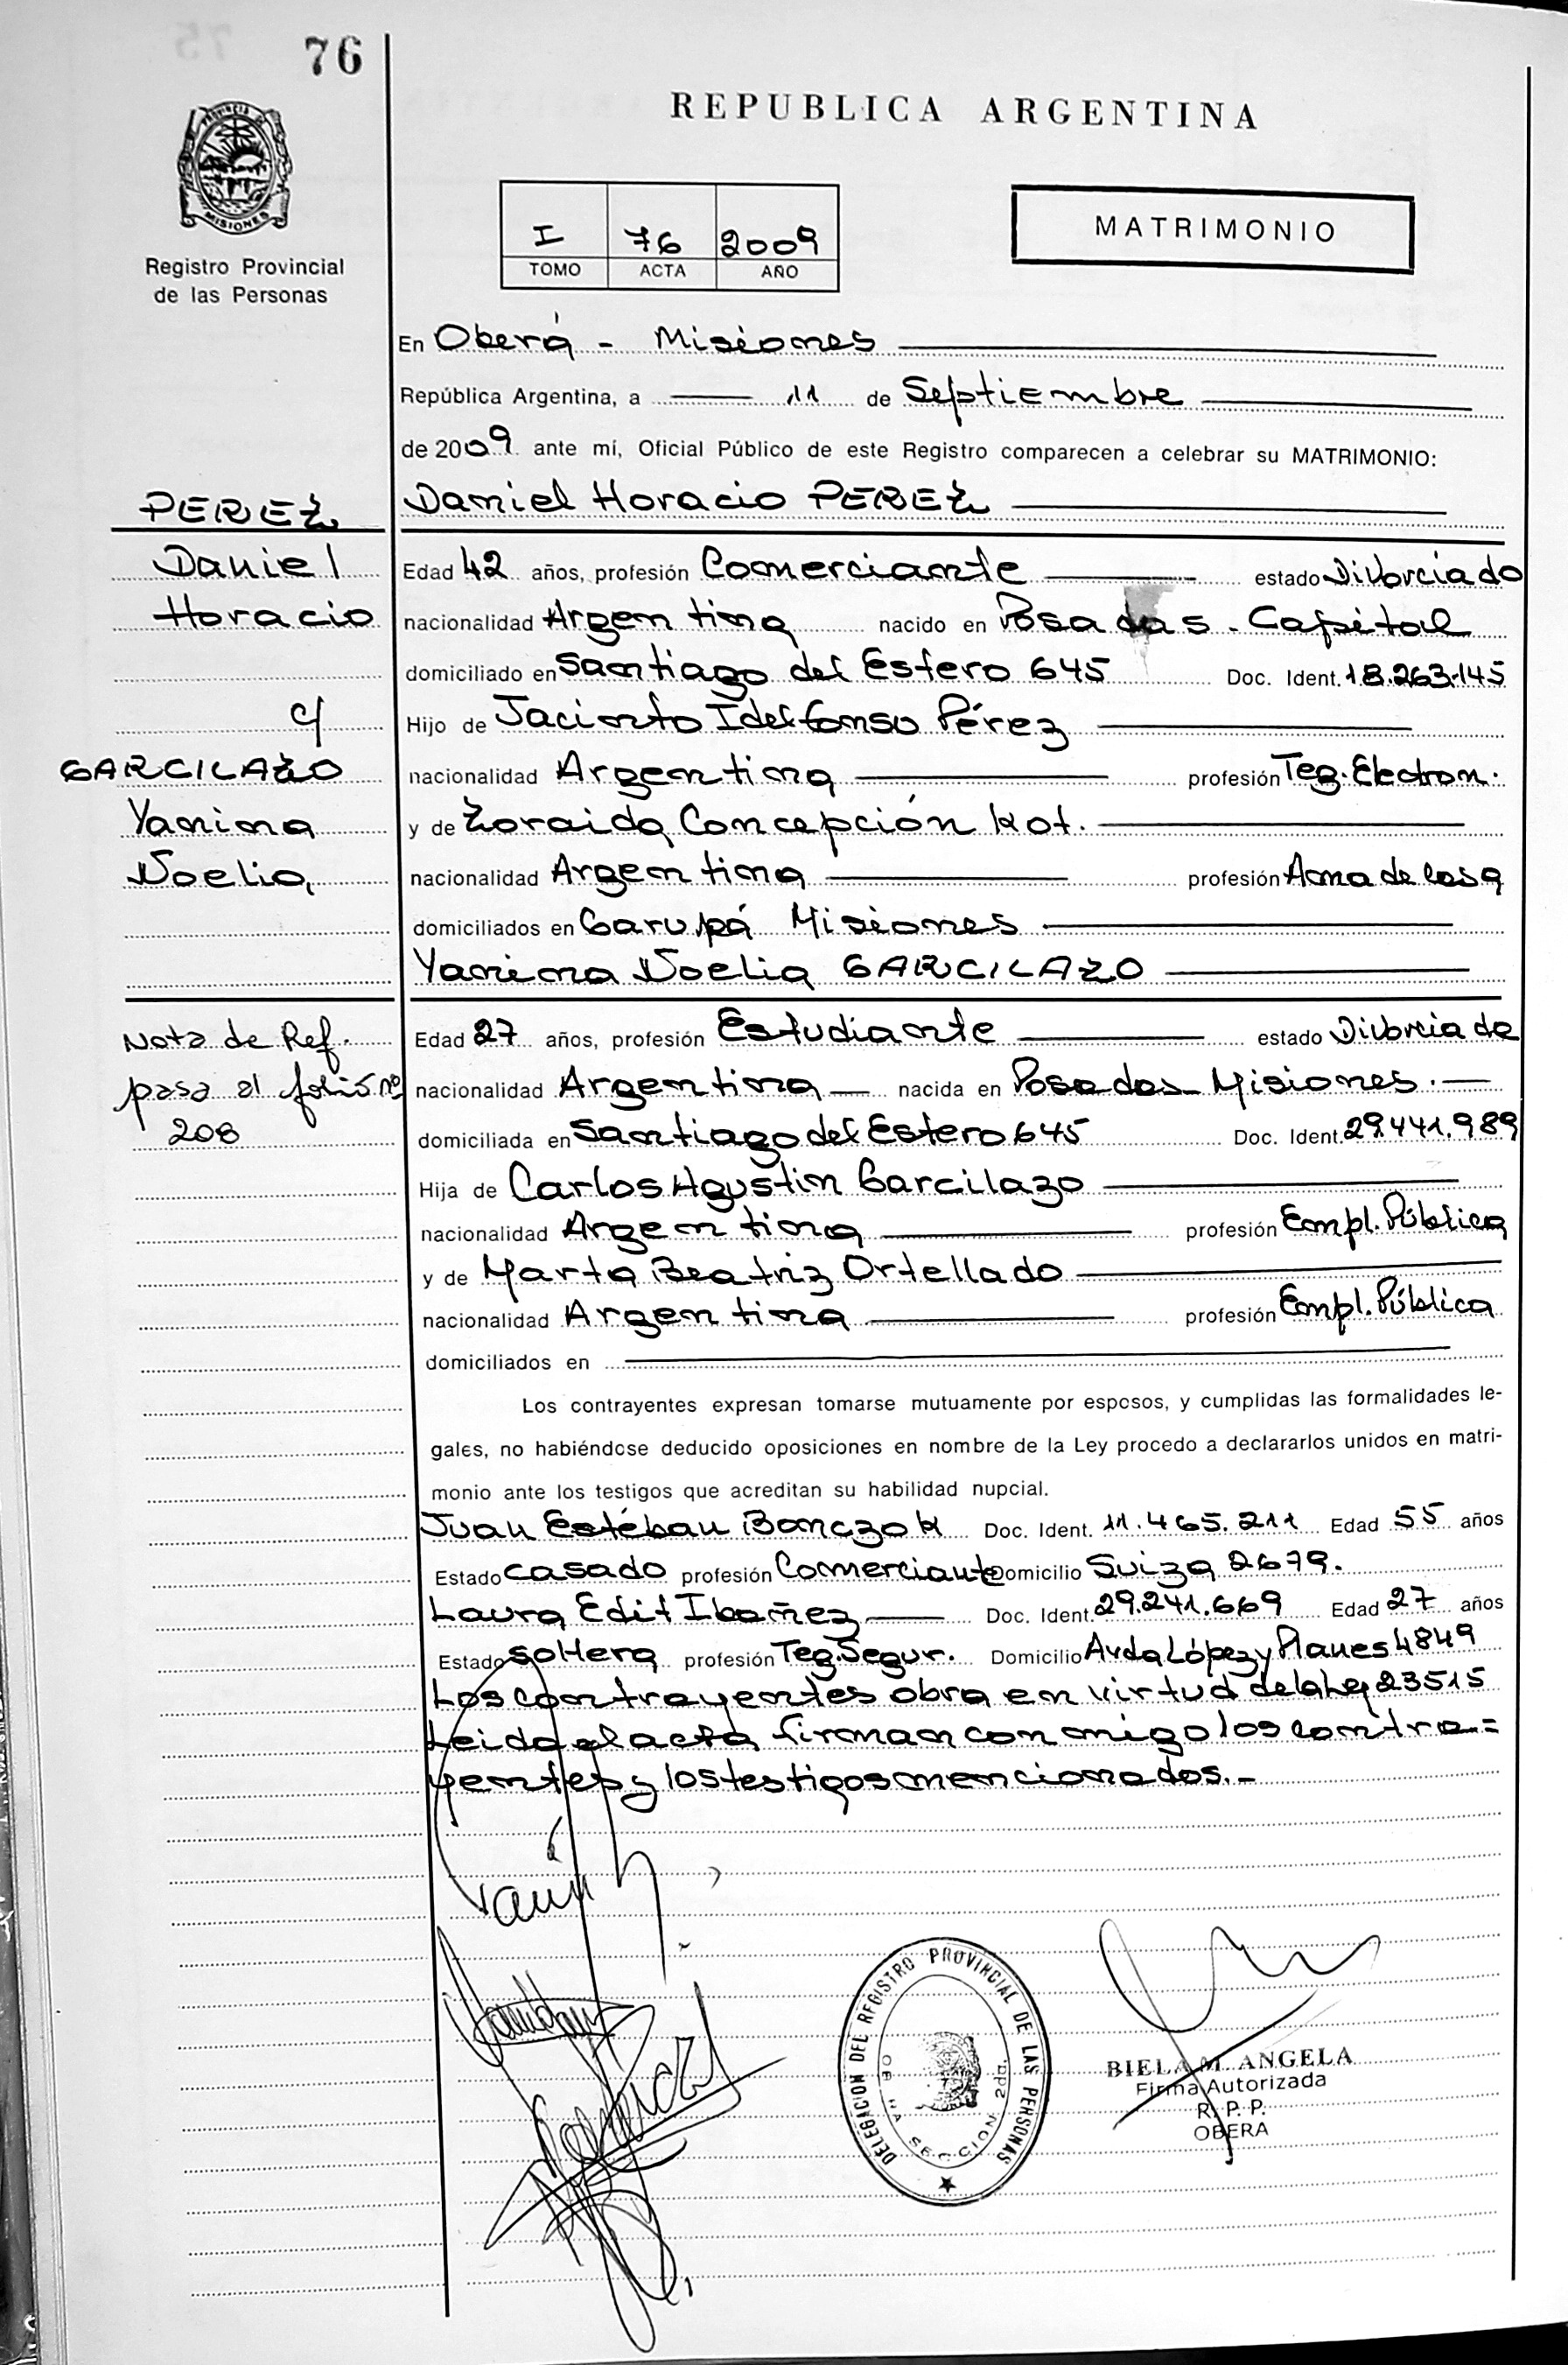 76
REPUBLICA ARGENTINA
PROVINCIA DE
MISIONES
Registro Provincial
de las Personas
I 76 2009
TOMO ACTA AÑO
MATRIMONIO
En Oberá - Misiones
República Argentina, a 11 de Septiembre
de 2009 ante mí, Oficial Público de este Registro comparecen a celebrar su MATRIMONIO:
PEREZ
Daniel Horacio PEREZ
Daniel
Edad 42 años, profesión Comerciante estado Divorciado
Horacio
nacionalidad Argentina nacido en Posadas - Capital
domiciliado en Santiago del Estero 645 Doc. Ident. 18.263.145
c/
Hijo de Jacinto Idelfonso Pérez
GARCILAZO
nacionalidad Argentina profesión Teg. Electron.
Yanina
y de Zoraida Concepción Kot.
Noelia
nacionalidad Argentina profesión Ama de Casa
domiciliados en Garupá Misiones
Yanina Noelia GARCILAZO
Nota de Ref.
Edad 27 años, profesión Estudiante estado Divorciada
pasa al folio nº
nacionalidad Argentina nacida en Posadas Misiones.
208
domiciliada en Santiago del Estero 645 Doc. Ident. 29.441.989
Hija de Carlos Agustin Garcilazo
nacionalidad Argentina profesión Empl. Pública
y de Marta Beatriz Ortellado
nacionalidad Argentina profesión Empl. Pública
domiciliados en
Los contrayentes expresan tomarse mutuamente por esposos, y cumplidas las formalidades le-
gales, no habiéndose deducido oposiciones en nombre de la Ley procedo a declararlos unidos en matri-
monio ante los testigos que acreditan su habilidad nupcial.
Juan Estéban Bonczok Doc. Ident. 11.465.211 Edad 55 años
Estado casado profesión Comerciante Domicilio Suiza 2679.
Laura Edit Ibañez Doc. Ident. 29.241.669 Edad 27 años
Estado soltera profesión Teg. Segur. Domicilio Avda López y Planes 4849
Los contrayentes obra en virtud de la Ley 23515
Leida el acta, firman con migo los contra=
yentes y los testigos mencionados.-
DELEGACION DEL REGISTRO PROVINCIAL DE LAS PERSONAS
OBERA SECCION 2da.
BIELA M. ANGELA
Firma Autorizada
R. P. P.
OBERA